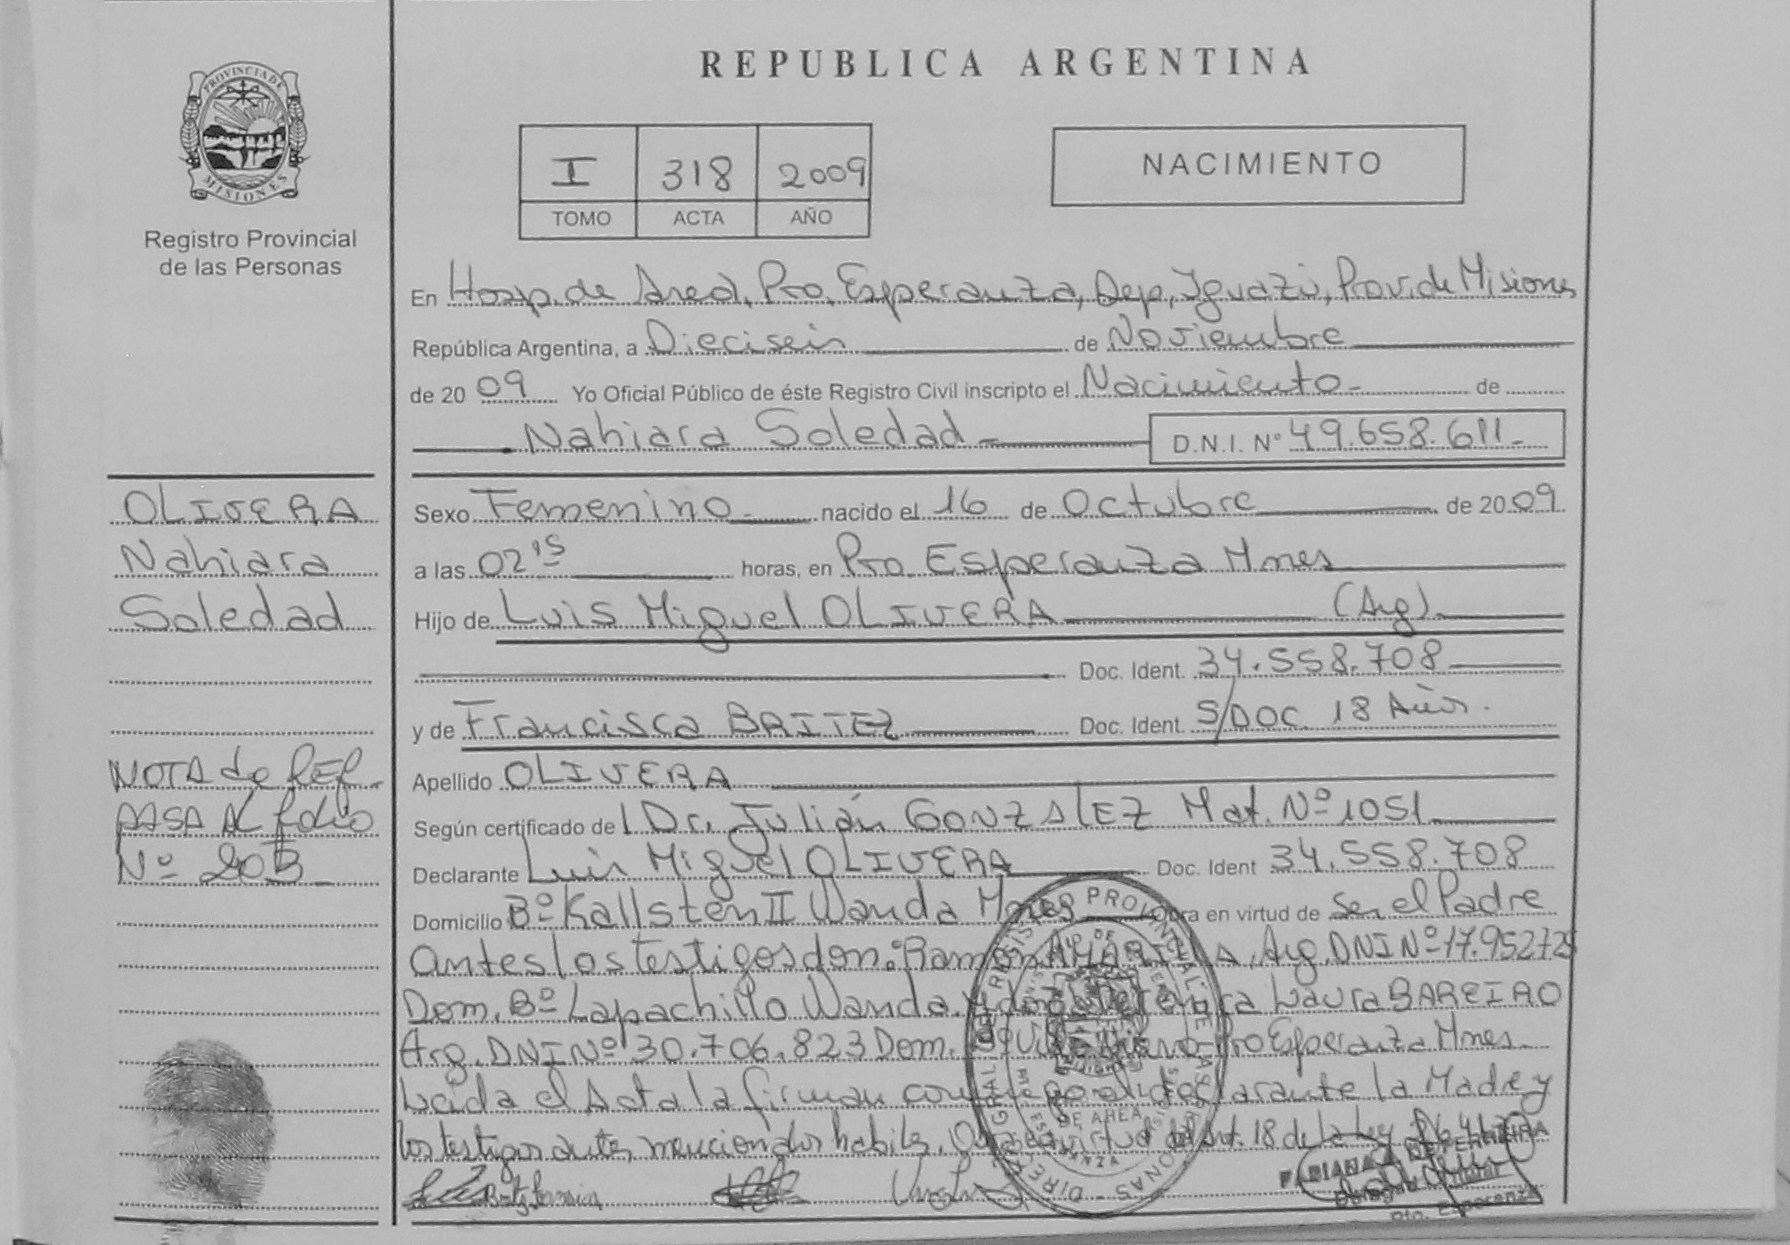 PROVINCIA DE
MISIONES
Registro Provincial
de las Personas
REPUBLICA ARGENTINA
I 318 2009
TOMO ACTA AÑO
NACIMIENTO
En Hosp. de Area, Pto. Esperanza, Dep. Iguazú, Prov. de Misiones
República Argentina, a Dieciseis de Noviembre
de 2009 Yo Oficial Público de éste Registro Civil inscripto el Nacimiento - de
Nahiara Soledad - D.N.I. Nº 49.658.611-
OLIVERA
Nahiara
Soledad
NOTA de REF.
PASA AL folio
Nº
Sexo Femenino - nacido el 16 de Octubre de 2009
a las 02 15 horas, en Pto. Esperanza Mnes
Hijo de Luis Miguel OLIVERA (Arg).
Doc. Ident. 34.558.708
y de Francisca BRITEZ Doc. Ident. S/DOC. 18 Años.
Apellido OLIVERA
Según certificado del Dr. Julián GONZALEZ Mat. Nº 1051
Declarante Luis Miguel OLIVERA Doc. Ident 34.558.708
Domicilio Bº Kallsten II Wanda Mnes Obra en virtud de Ser el Padre
Antes los testigos don: Ramón AMARILLA, Arg. DNI Nº 17.952725
Dom. Bº Lapachillo Wanda y doña Laura BAREIRO
Arg. DNI Nº 30.706.823 Dom. Pto Esperanza Mnes.
Leida el Acta la firman conmigo el declarante la Madre y
los testigos antes mencionados habiles. Obra en virtud del Art. 18 de la Ley
REGISTRO PROVINCIAL DE LAS PERSONAS
DE AREA
FABIANA DE FERREIRA
Pto. Esperanza